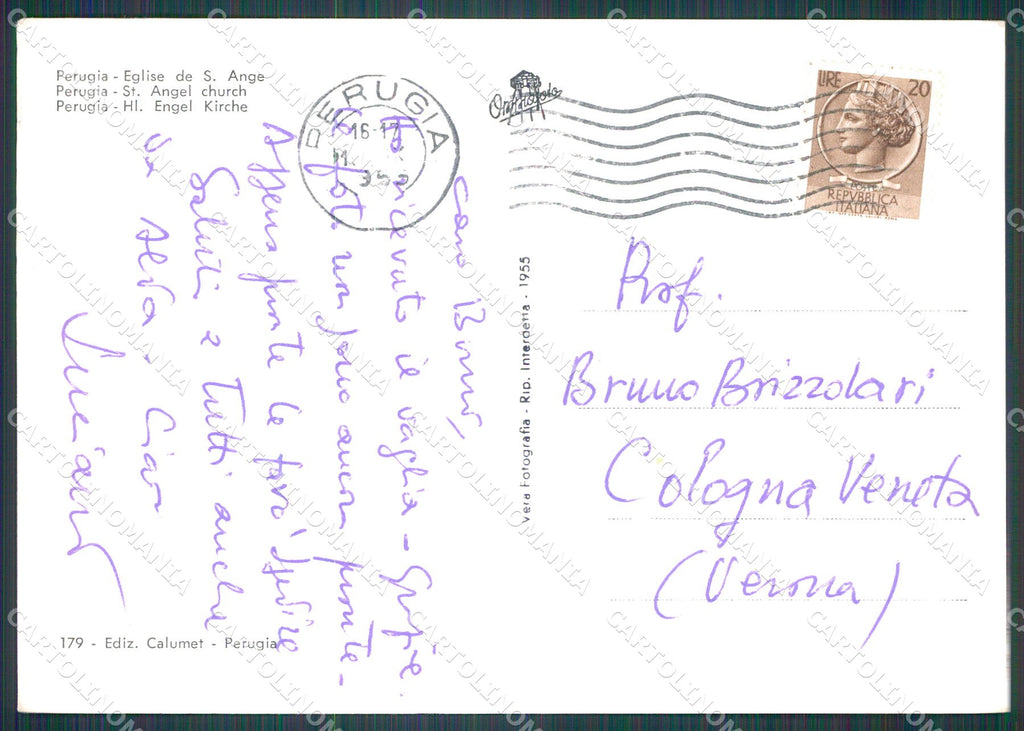 Perugia - Eglise de S. Ange
Perugia - St. Angel church
Perugia - Hl. Engel Kirche
PERUGIA
16-17
Ornofoto
LIRE 20
POSTE
REPVBBLICA
ITALIANA
Caro Bruno,
Ho ricevuto il vaglia - Grazie.
Le foto non sono ancora pronte -
Appena pronte le farò spedire
Saluti a Tutti anche
da Alda - Ciao
Luciano
Vera Fotografia - Rip. Interdetta - 1955
Prof.
Bruno Brizzolari
Cologna Veneta
(Verona)
179 - Ediz. Calumet - Perugia
CARTOLINOMANIA